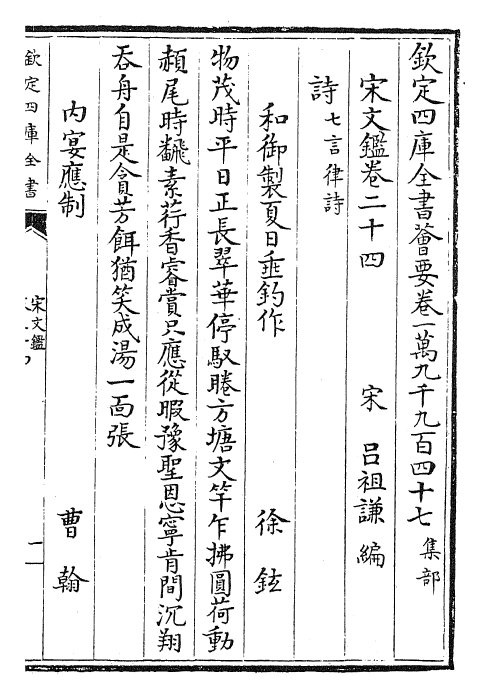 欽定四庫全書薈要卷一萬九千九百四十七 集部
宋文鑑卷二十四
宋 吕祖謙 編
詩 七言律詩
和御製夏日垂釣作 徐鉉
物茂時平日正長翠華停馭睠方塘文竿乍拂圓荷動
頳尾時翻素荇香睿賞只應從暇豫聖恩寧肯間沉翔
吞舟自是貪芳餌猶笑成湯一面張
内宴應制 曹翰
欽定四庫全書
宋文鑑
一